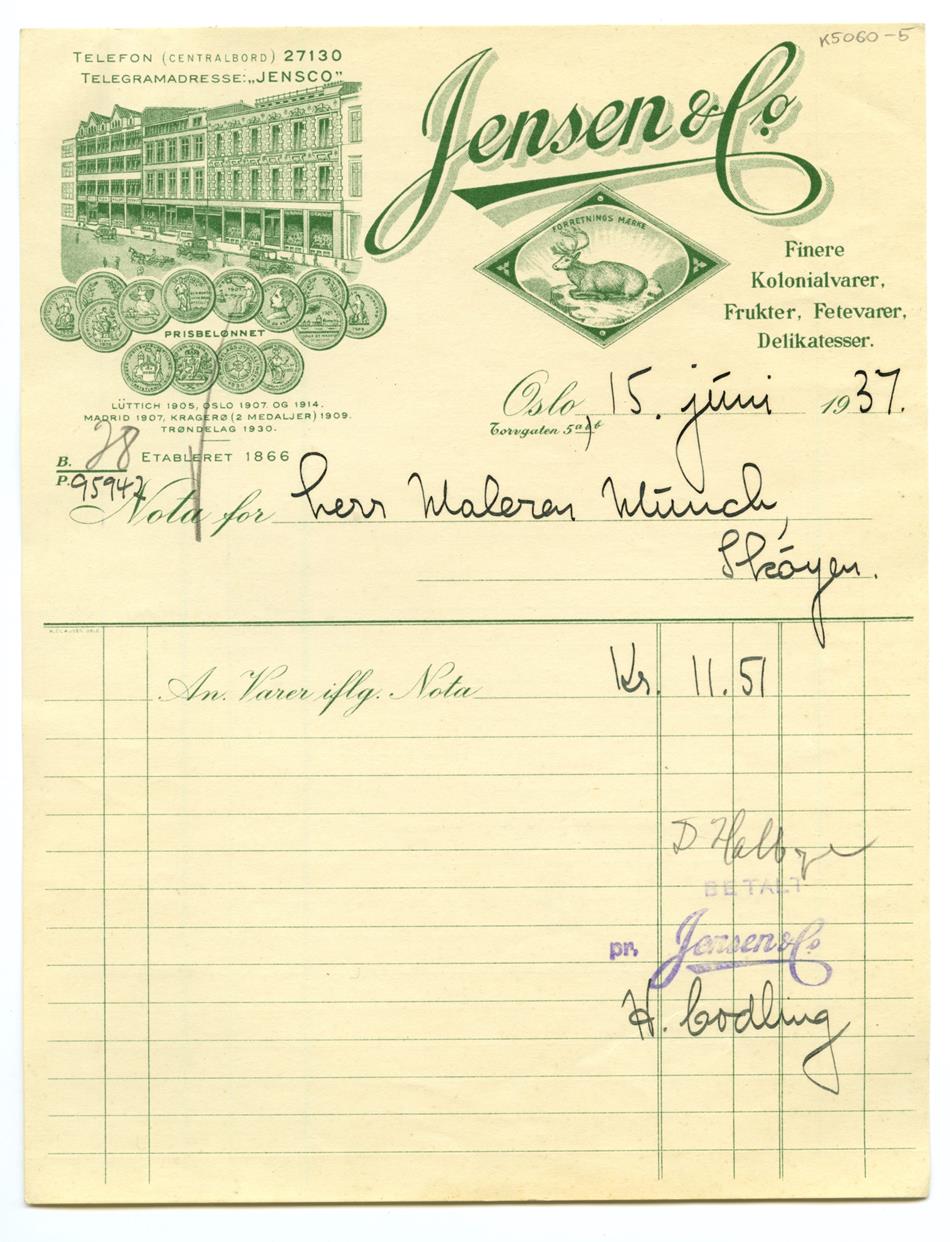 K5060-5
TELEFON (CENTRALBORD) 27130
TELEGRAMADRESSE: „JENSCO”
Jensen & Co
FORRETNINGS MÆRKE
Finere
Kolonialvarer,
Frukter, Fetevarer,
Delikatesser.
PRISBELØNNET
LÜTTICH 1905, OSLO 1907. OG 1914.
MADRID 1907, KRAGERØ (2 MEDALJER) 1909.
TRØNDELAG 1930.
ETABLERET 1866
Oslo, 15. juni 1937.
Torvgaten 5 a & b
B. 28
P. 95942
Nota for Herr Maleren Munch,
Skøyen.
An. Varer iflg. Nota Kr. 11.51
BETALT
pr. Jensen & Co
H. Codling